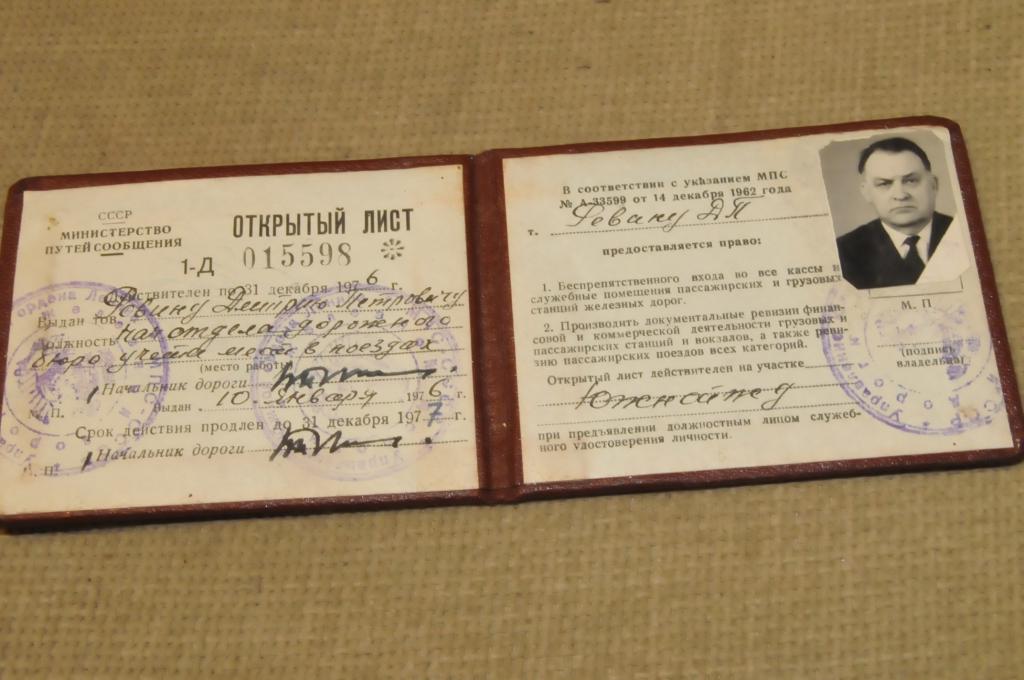 СССР
МИНИСТЕРСТВО
ПУТЕЙ СООБЩЕНИЯ
ОТКРЫТЫЙ ЛИСТ
1-Д 015598
Действителен до 31 декабря 1976 г.
Выдан тов. Ревину Дмитрию Петровичу
Должность нач отдела дорожного
бюро учета мест в поездах
(место работы)
Начальник дороги
М. П. Выдан 10 Января 1976 г.
Срок действия продлен до 31 декабря 1977 г.
М. П. Начальник дороги
В соответствии с указанием МПС
№ А-33599 от 14 декабря 1962 года
т. Ревину Д П
предоставляется право:
1. Беспрепятственного входа во все кассы и
служебные помещения пассажирских и грузовых
станций железных дорог.
2. Производить документальные ревизии финан-
совой и коммерческой деятельности грузовых и
пассажирских станций и вокзалов, а также реви-
зию пассажирских поездов всех категорий.
Открытый лист действителен на участке
Южная жд
при предъявлении должностным лицом служеб-
ного удостоверения личности.
М. П
(подпись
владельца)